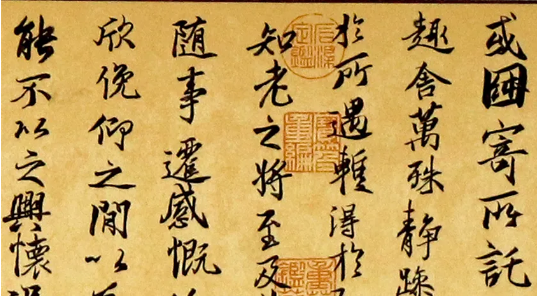 或因寄所託
趣舍萬殊靜躁
於所遇輙得於
知老之將至及
随事遷感慨
欣俛仰之閒以
能不以之興懷